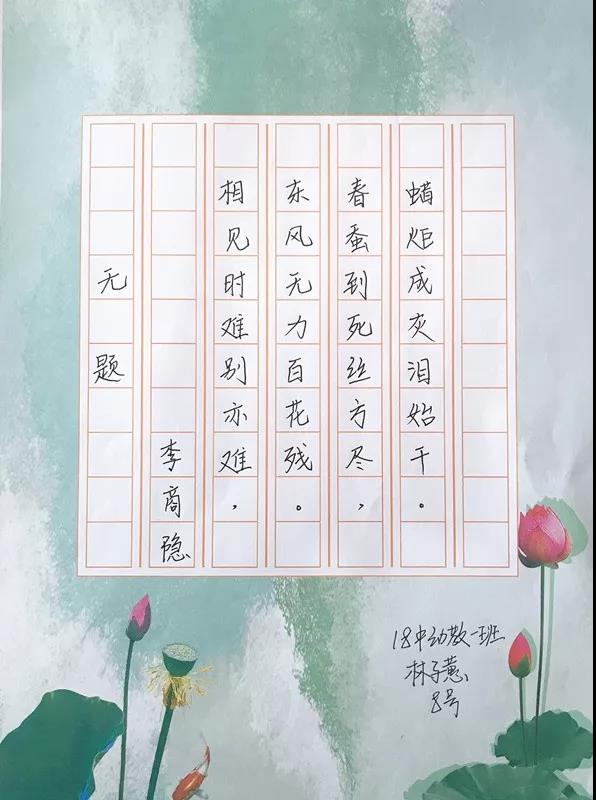 无题
李商隐
相见时难别亦难，
东风无力百花残。
春蚕到死丝方尽，
蜡炬成灰泪始干。
18中幼教一班
林子薏
8号